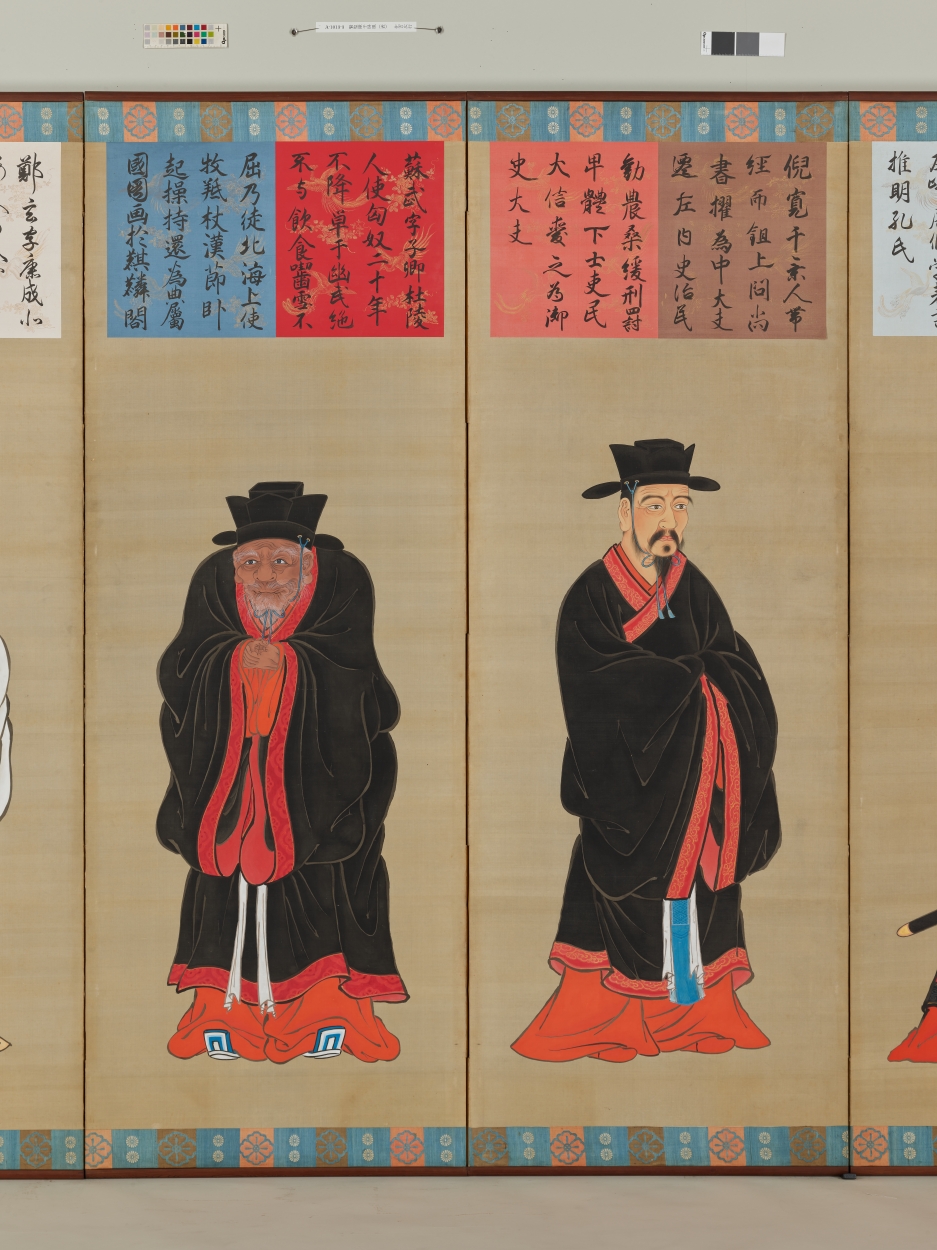 推明孔氏
倪寛千乗人帯
経而鉏上問尚
書擢為中大夫
遷左内史治民
勧農桑緩刑罸
卑體下士吏民
大信愛之為御
史大夫
蘇武字子卿杜陵
人使匈奴二十年
不降単于幽武絶
不与飲食齧雪不
屈乃徒北海上使
牧羝杖漢節卧
起操持還為典属
國圖画於麒麟閣
鄭玄字康成北